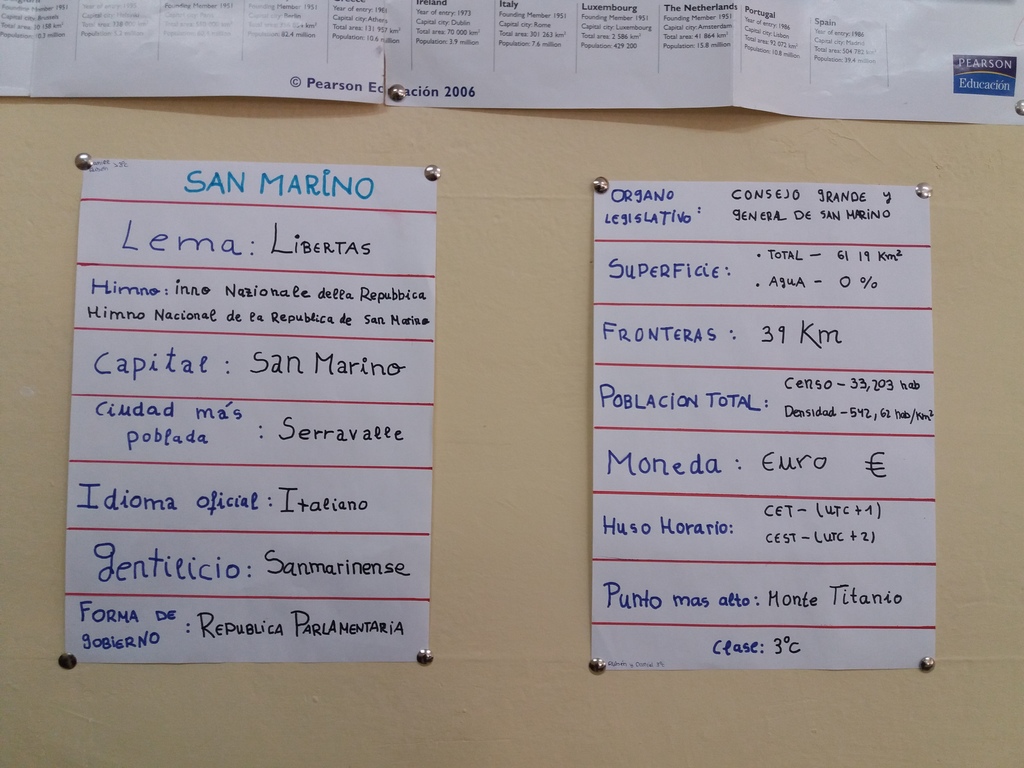 Founding Member 1951
Capital city: Brussels
Year of entry: 1981
Capital city: Athens
Total area: 131 957 km²
Population: 10.6 million
82.4 million
Ireland
Year of entry: 1973
Capital city: Dublin
Total area: 70 000 km²
Population: 3.9 million
Italy
Founding Member 1951
Capital city: Rome
Total area: 301 263 km²
Population: 7.6 million
Luxembourg
Founding Member 1951
Capital city: Luxembourg
Total area: 2 586 km²
Population: 429 200
The Netherlands
Founding Member 1951
Capital city: Amsterdam
Total area: 41 864 km²
Population: 15.8 million
Portugal
Year of entry: 1986
Capital city: Lisbon
Total area: 92 072 km²
Population: 10.8 million
Spain
Year of entry: 1986
Capital city: Madrid
Total area: 504 782 km²
Population: 39.4 million
© Pearson Educación 2006
PEARSON
Educación
SAN MARINO
Lema: LIBERTAS
Himno: inno Nazionale della Repubbica
Himno Nacional de la Republica de San Marino
Capital: San Marino
Ciudad más
poblada : Serravalle
Idioma oficial: Italiano
Gentilicio: Sanmarinense
FORMA DE
GOBIERNO : REPUBLICA PARLAMENTARIA
ORGANO
LEGISLATIVO: CONSEJO GRANDE y
GENERAL DE SAN MARINO
SUPERFICIE: • TOTAL – 61 19 Km²
• AGUA – 0 %
FRONTERAS: 39 Km
POBLACION TOTAL: Censo – 33,203 hab
Densidad – 542,62 hab/km²
Moneda: Euro €
Huso Horario: CET – (UTC +1)
CEST – (UTC +2)
Punto mas alto: Monte Titanio
Clase: 3ºC